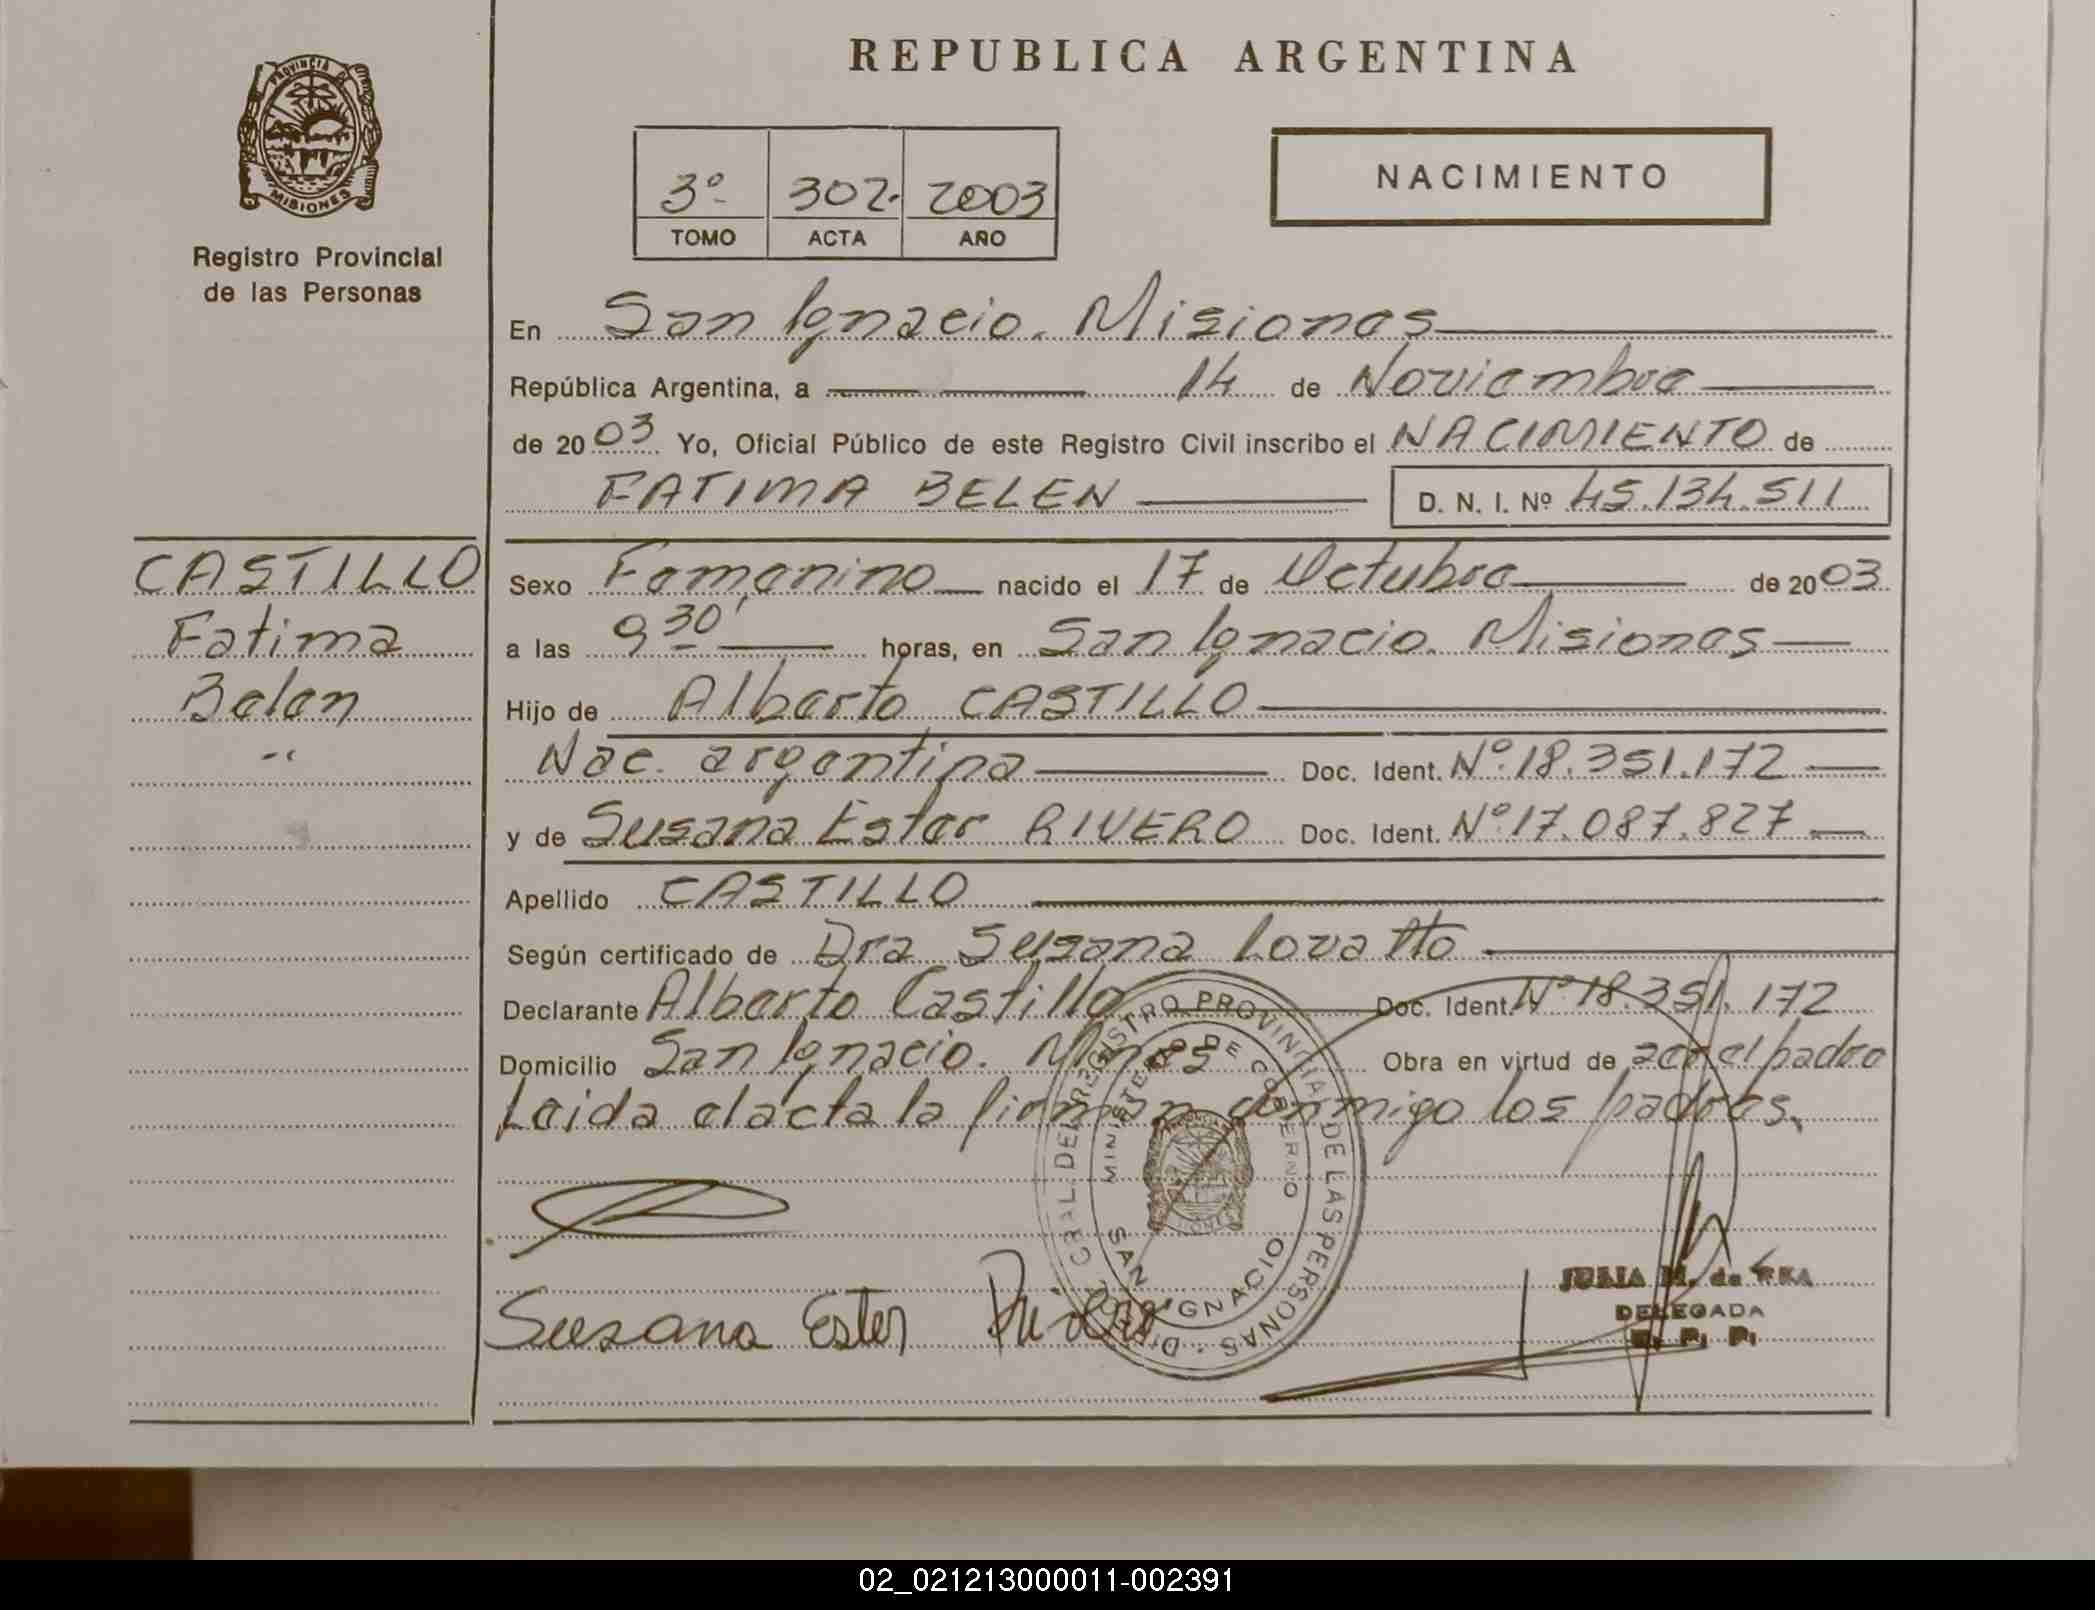 REPUBLICA ARGENTINA
PROVINCIA DE
MISIONES
Registro Provincial
de las Personas
3º 302. 2003
TOMO ACTA AÑO
NACIMIENTO
En San Ignacio. Misiones
República Argentina, a 14 de Noviembre
de 2003 Yo, Oficial Público de este Registro Civil inscribo el NACIMIENTO de
FATIMA BELEN D. N. I. Nº 45.134.511
CASTILLO
Fatima
Belen
Sexo Femenino nacido el 17 de Octubre de 2003
a las 9 30' horas, en San Ignacio. Misiones
Hijo de Alberto CASTILLO
Nac. argentina Doc. Ident. Nº 18.351.172
y de Susana Ester RIVERO Doc. Ident. Nº 17.087.827
Apellido CASTILLO
Según certificado de Dra Susana Lovatto
Declarante Alberto Castillo Doc. Ident. Nº 18.351.172
Domicilio San Ignacio. Mnes Obra en virtud de ser el padre
Leida el acta la firman conmigo los padres.
REGISTRO PROVINCIAL DE LAS PERSONAS
MINISTERIO DE GOBIERNO
SAN IGNACIO
Susana Ester Rivero
JULIA M. de
DELEGADA
R. P. P.
02_021213000011-002391